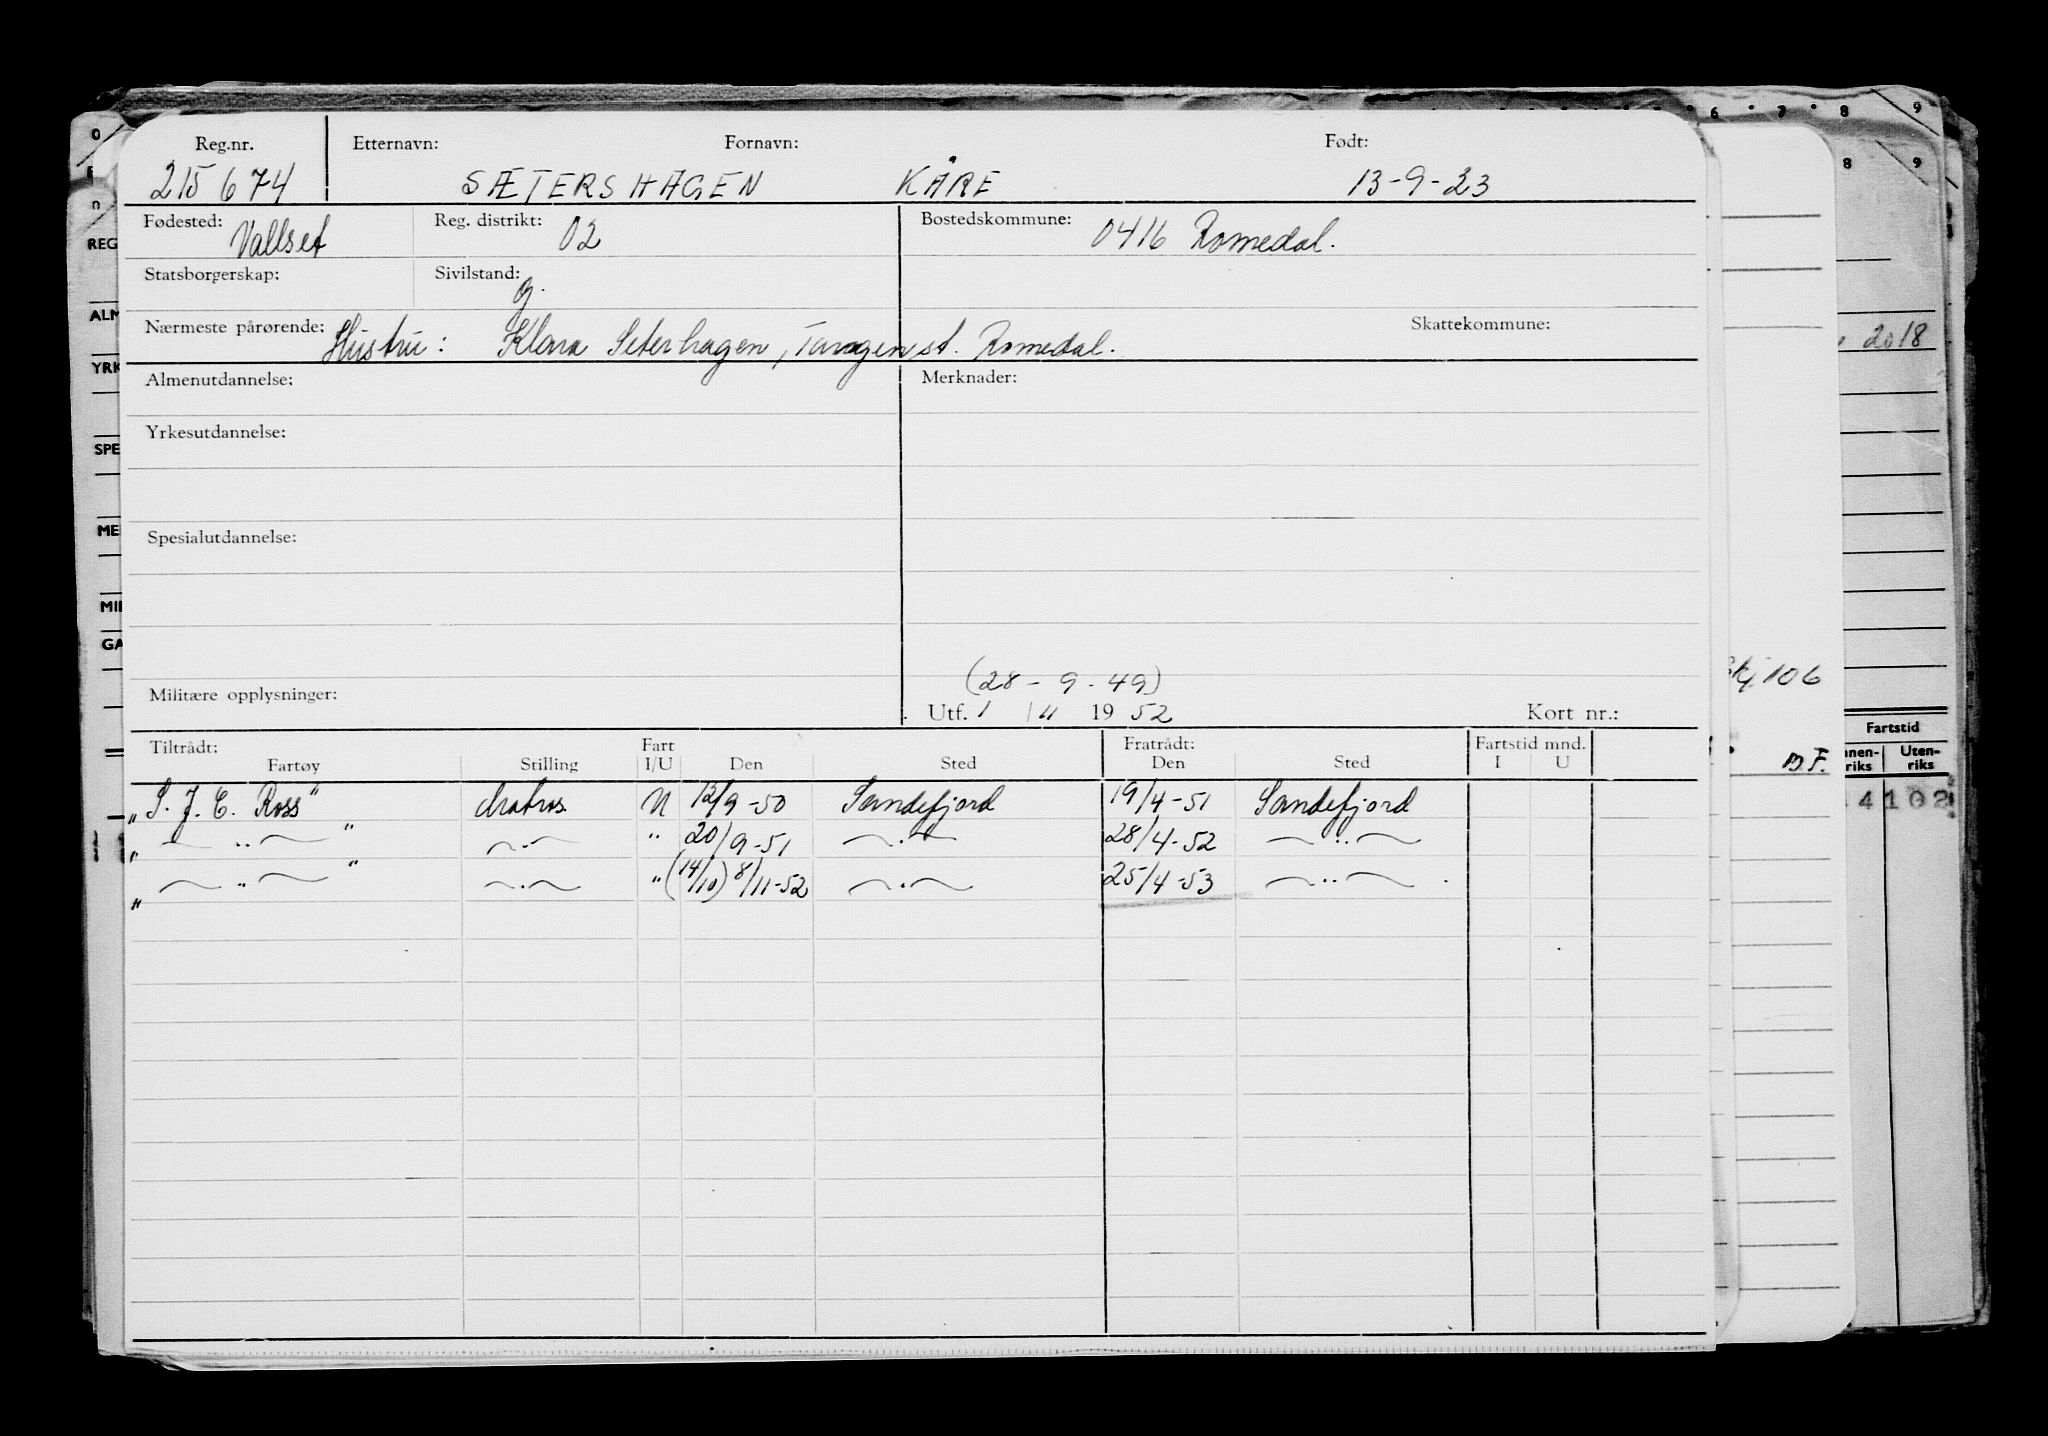 Reg.nr. Etternavn: Fornavn: Født:
215674 SÆTERSHAGEN KÅRE 13-9-23
Fødested: Vallset Reg. distrikt: 02 Bostedskommune: 0416 Romedal.
Statsborgerskap: Sivilstand: g.
Nærmeste pårørende: Hustru: Klara Seterhagen, Tangen st. Romedal. Skattekommune:
Almenutdannelse: Merknader:
Yrkesutdannelse:
Spesialutdannelse:
(28-9-49)
Militære opplysninger: Utf. 1/11 1952 Kort nr.:
Tiltrådt: Fart Fratrådt: Fartstid mnd.
Fartøy Stilling I/U Den Sted Den Sted I U
"S. J. E. Ross" Matros U 12/9-50 Sandefjord 19/4-51 Sandefjord
" — " — " — " — " 20/9-51 — " — 28/4-52 — " —
" — " — " — " — " (14/10) 8/11-52 — " — 25/4-53 — " —
6 7 8 9
8 9
0
n
REG
ALM
YRK
SPE
ME
MIL
GA
2018
106
Fartstid
Innen-riks Uten-riks
B F.
4102